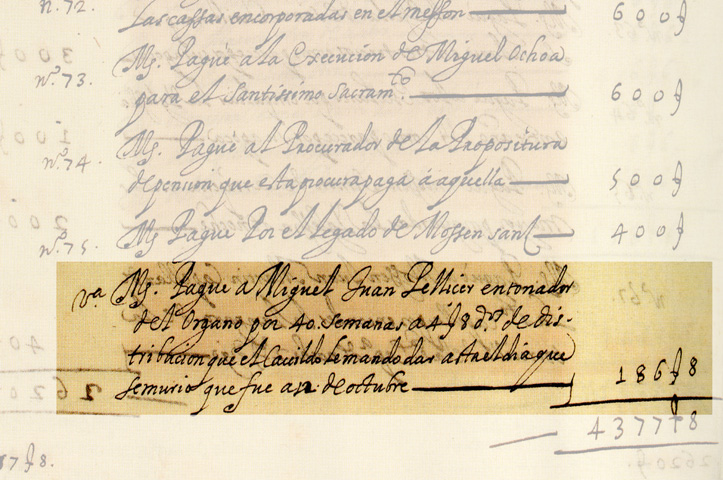 n. 72.
Las cassas encorporadas en el messon 600 ʃ
nº 73. Ms. Pague a la Execucion de Miguel Ochoa
para el Santissimo Sacramto. 600 ʃ
nº 74. Ms. Pague al Procurador de la Propositura
de pension que esta procura paga á aquella 500 ʃ
nº 75. Ms Pague Por el legado de Mossen 400 ʃ
va. Ms. Pague a Miguel Juan Pellicer entonador
del Organo por 40. semanas a 4 ʃ 8 ds. de dis-
tribucion que el Cauildo le mando dar asta el dia que
se murio que fue a 12 de octubre 186 ʃ 8
4377 ʃ 8